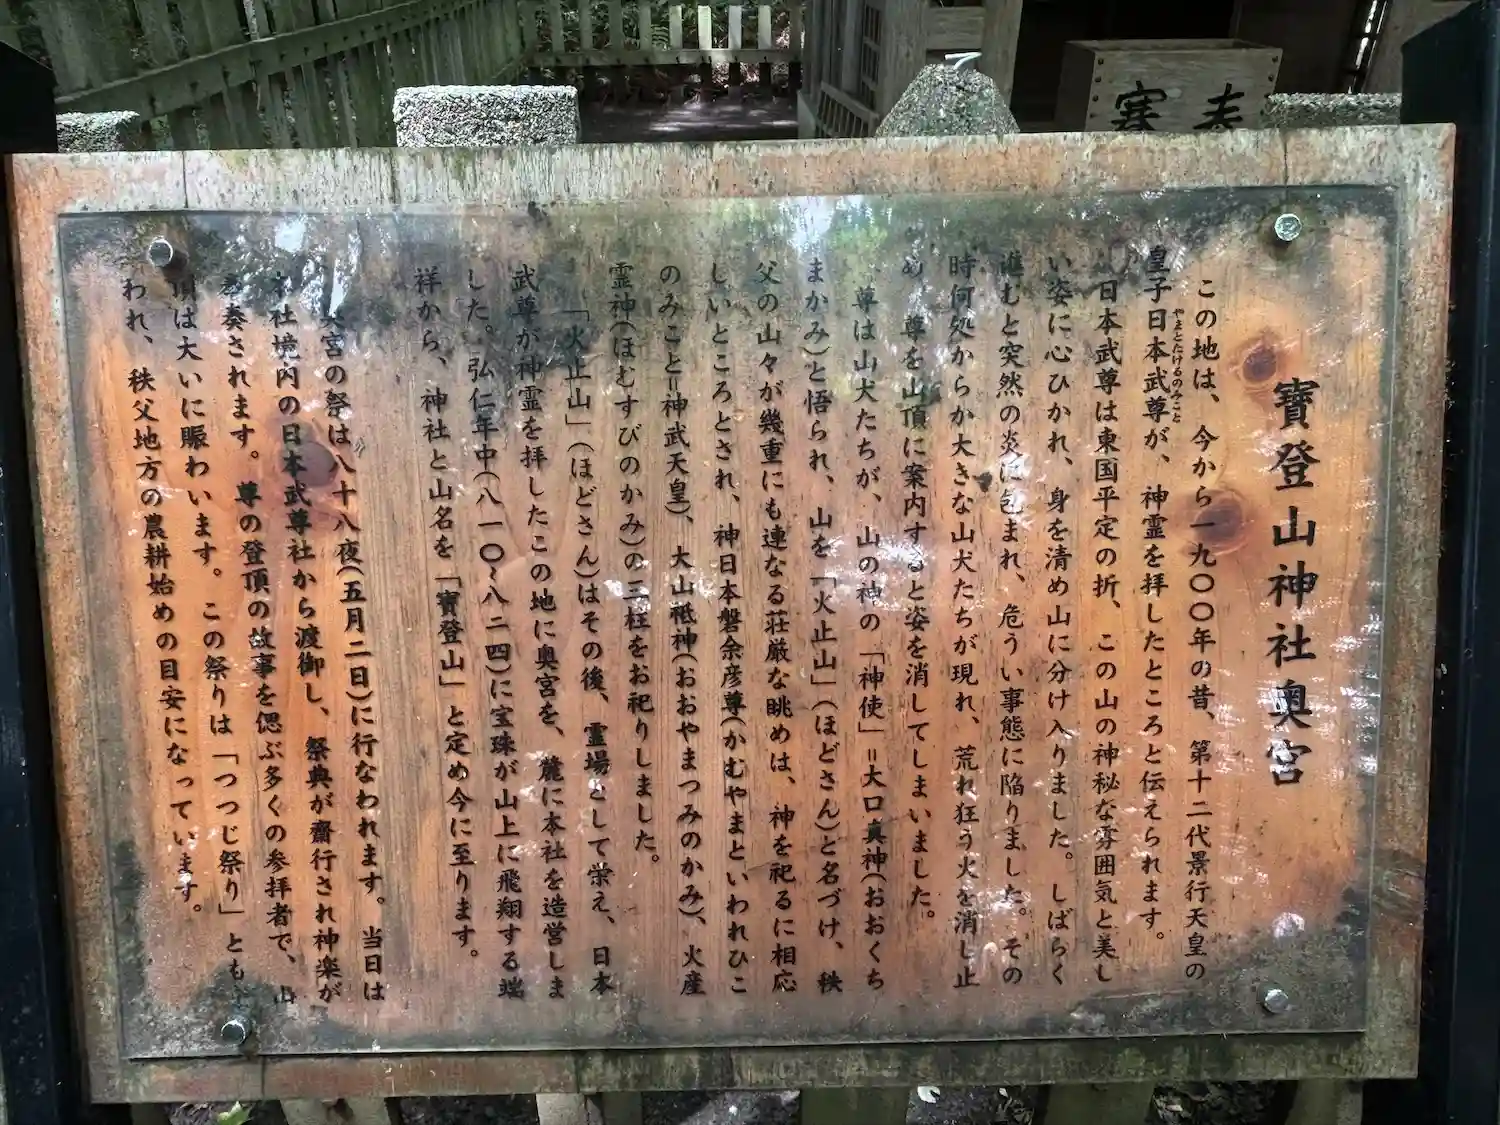 寶登山神社奥宮
この地は、今から一九〇〇年の昔、第十二代景行天皇の
皇子日本武尊が、神霊を拝したところと伝えられます。
やまとたけるのみこと
日本武尊は東国平定の折、この山の神秘な雰囲気と美し
い姿に心ひかれ、身を清め山に分け入りました。しばらく
進むと突然の炎に包まれ、危うい事態に陥りました。その
時何処からか大きな山犬たちが現れ、荒れ狂う火を消し止
め、尊を山頂に案内すると姿を消してしまいました。
尊は山犬たちが、山の神の「神使」=大口真神(おおくち
まかみ)と悟られ、山を「火止山」(ほどさん)と名づけ、秩
父の山々が幾重にも連なる荘厳な眺めは、神を祀るに相応
しいところとされ、神日本磐余彦尊(かむやまといわれひこ
のみこと=神武天皇)、大山祗神(おおやまつみのかみ)、火産
霊神(ほむすびのかみ)の三柱をお祀りしました。
「火止山」(ほどさん)はその後、霊場として栄え、日本
武尊が神霊を拝したこの地に奥宮を、麓に本社を造営しま
した。弘仁年中(八一〇~八二四)に宝珠が山上に飛翔する端
祥から、神社と山名を「寶登山」と定め今に至ります。
奥宮の祭は八十八夜(五月二日)に行なわれます。当日は
本社境内の日本武尊社から渡御し、祭典が齋行され神楽が
奏されます。尊の登頂の故事を偲ぶ多くの参拝者で、山
頂は大いに賑わいます。この祭りは「つつじ祭り」とも
われ、秩父地方の農耕始めの目安になっています。